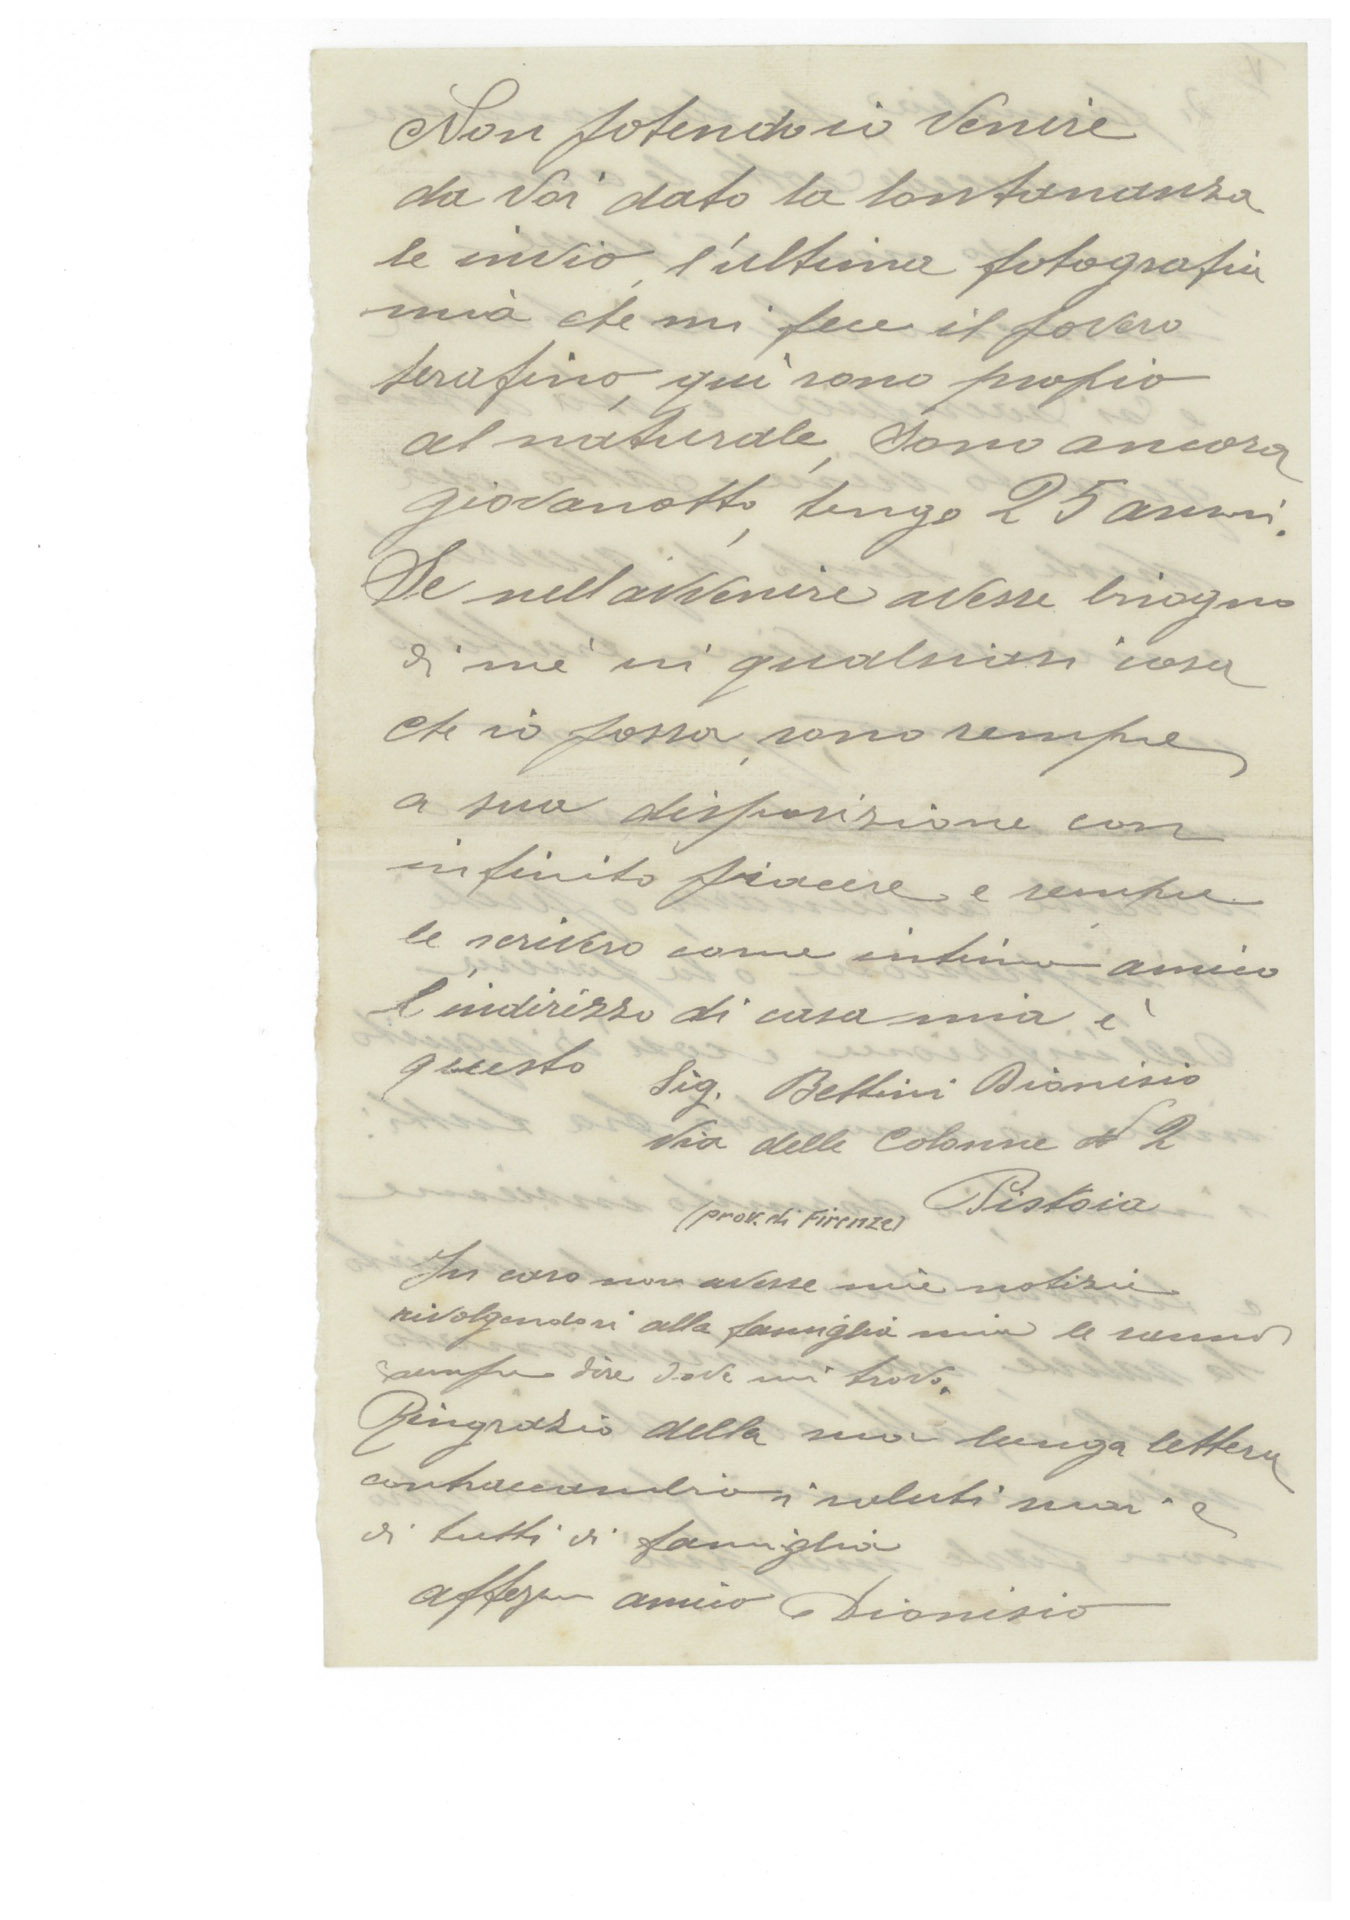 Non potendo io venire
da Voi dato la lontananza
le invio, l'ultima fotografia
mia che mi fece il povero
Serafino, qui sono propio
al naturale, Sono ancora
giovanotto, tengo 25 anni.
Se nell'avvenire avesse bisogno
di me in qualsiasi cosa
che io possa, sono sempre
a sua disposizione con
infinito piacere e sempre
le scriverò come intimo amico
l'indirizzo di casa mia è
questo Sig. Bettini Dionisio
Via delle Colonne N 2
(prov. di Firenze) Pistoia
In caso non avesse mie notizie
rivolgendosi alla famiglia mia le sanno
sempre dire dove mi trovo.
Ringrazio della sua lunga lettera
contraccambio i saluti suoi e
di tutti di famiglia
affezmo amico Dionisio